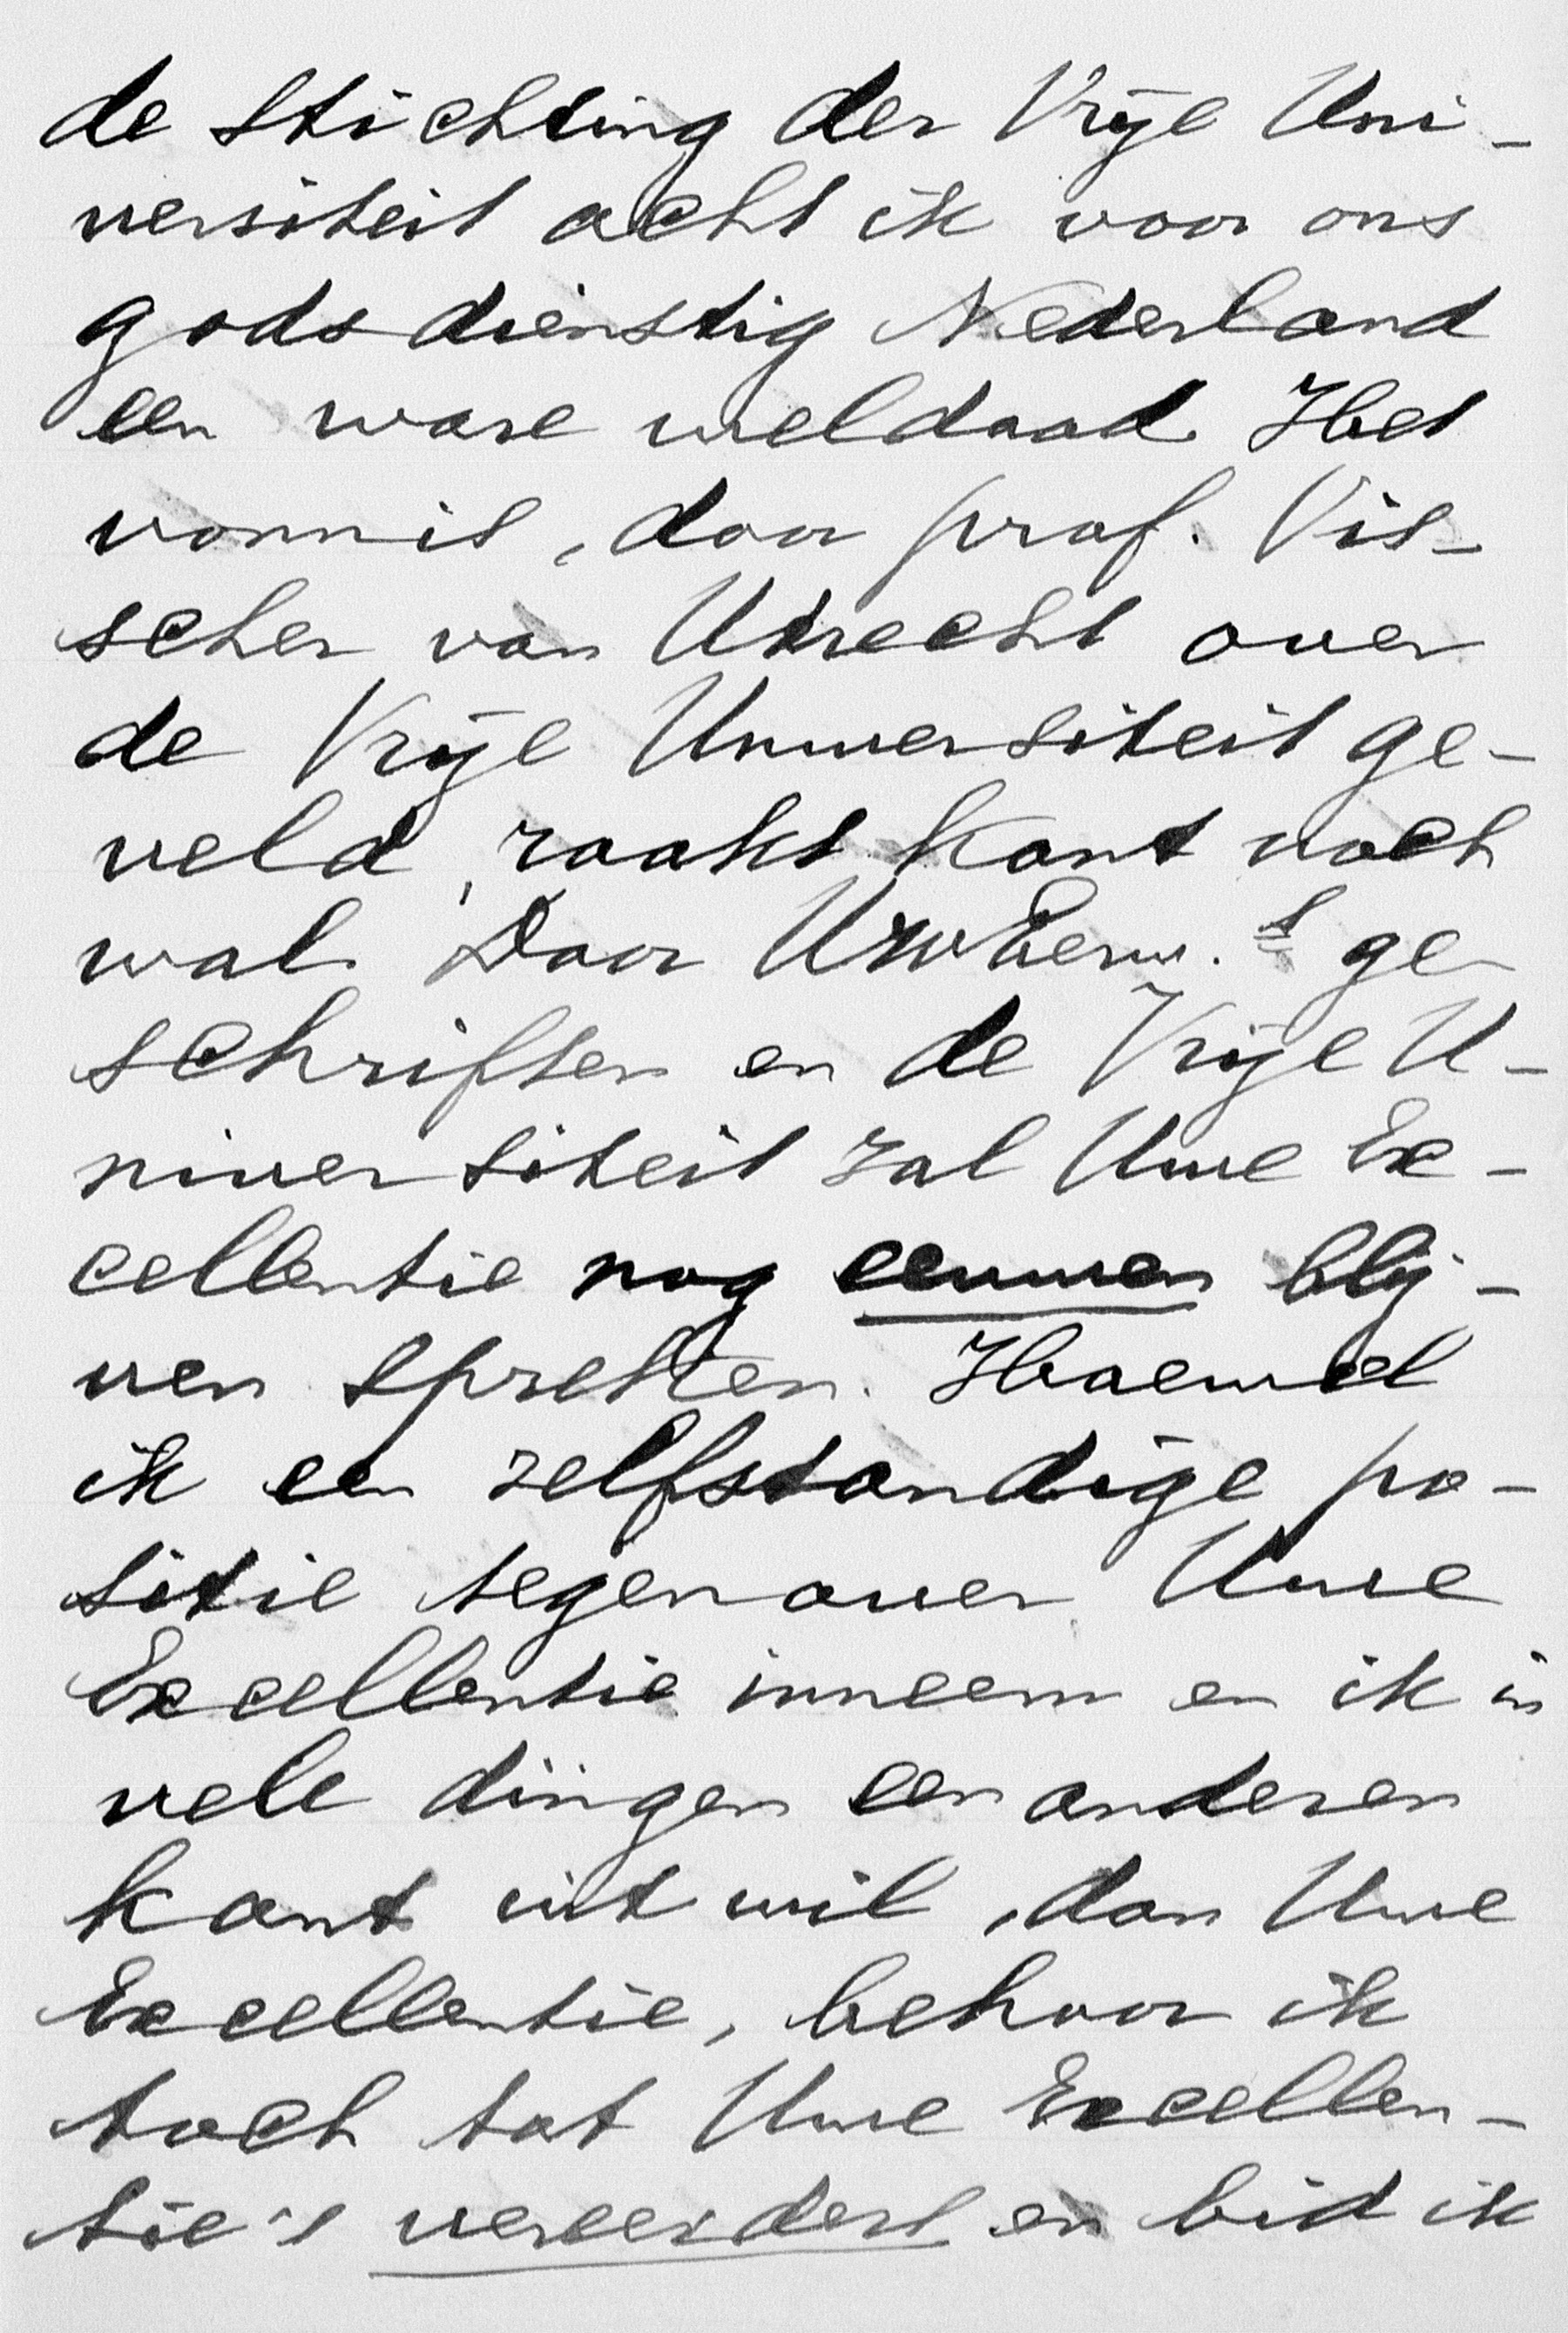 de stichting der Vrije Uni-
versiteit acht ik voor ons
godsdienstig Nederland
een ware weldaad. Het
vonnis, door prof. Vis-
scher van Utrecht over
de Vrije Universiteit ge-
veld, raakt kant noch
wal. Door UwEerw.s ge-
schriften en de Vrije U-
niversiteit zal Uwe Ex-
cellentie nog eeuwen blij-
ven spreken. Hoewel
ik een zelfstandige po-
sitie tegenover Uwe
Excellentie inneem en ik in
vele dingen een anderen
kant uit wil, dan Uwe
Excellentie, behoor ik
toch tot Uwe Excellen-
tie's vereerders en bid ik